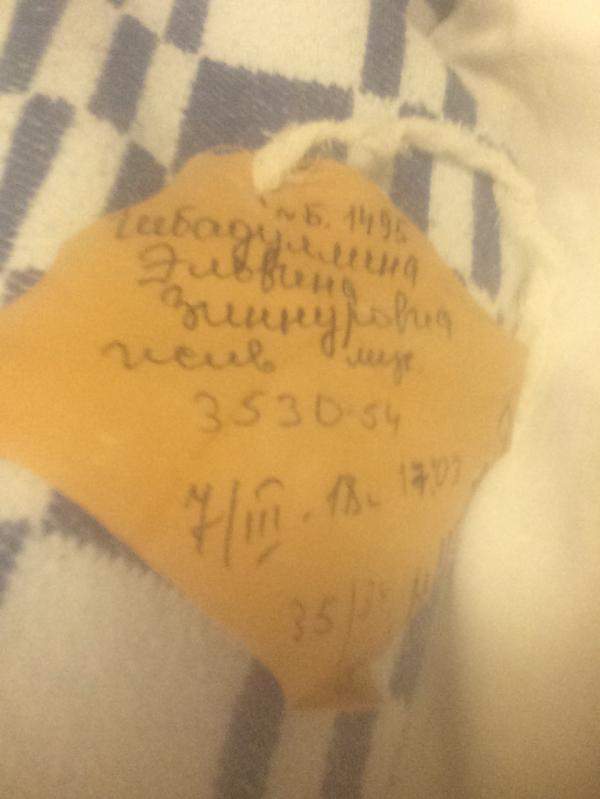 №Б. 1495
Шбадуллина
Эльвина
Зиннуровна
жив муж.
3530-54
7/III. 18г 17:03
35/34